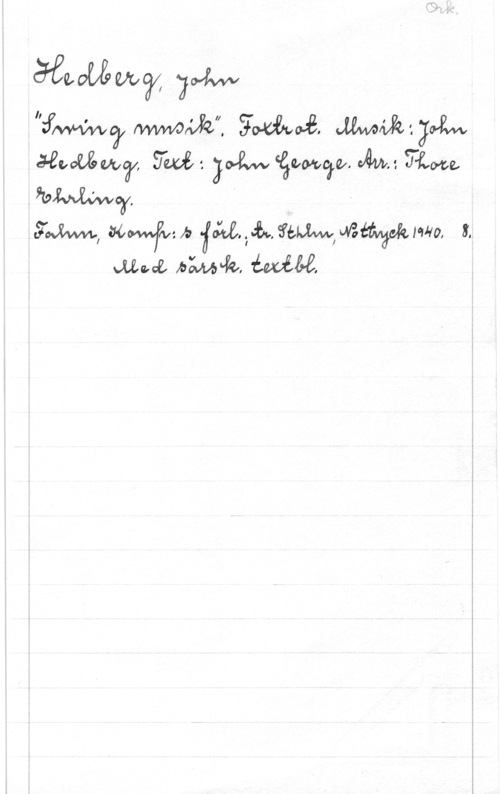 Ork.
Hedberg, John
"Swing musik". Foxtrot. Musik: John
Hedberg. Text: John George. Arr.: Thore
Ehrling.
Falun, Komp:s förl.; tr. Sthlm, Nottryck 1940. 8.
Med särsk. textbl.